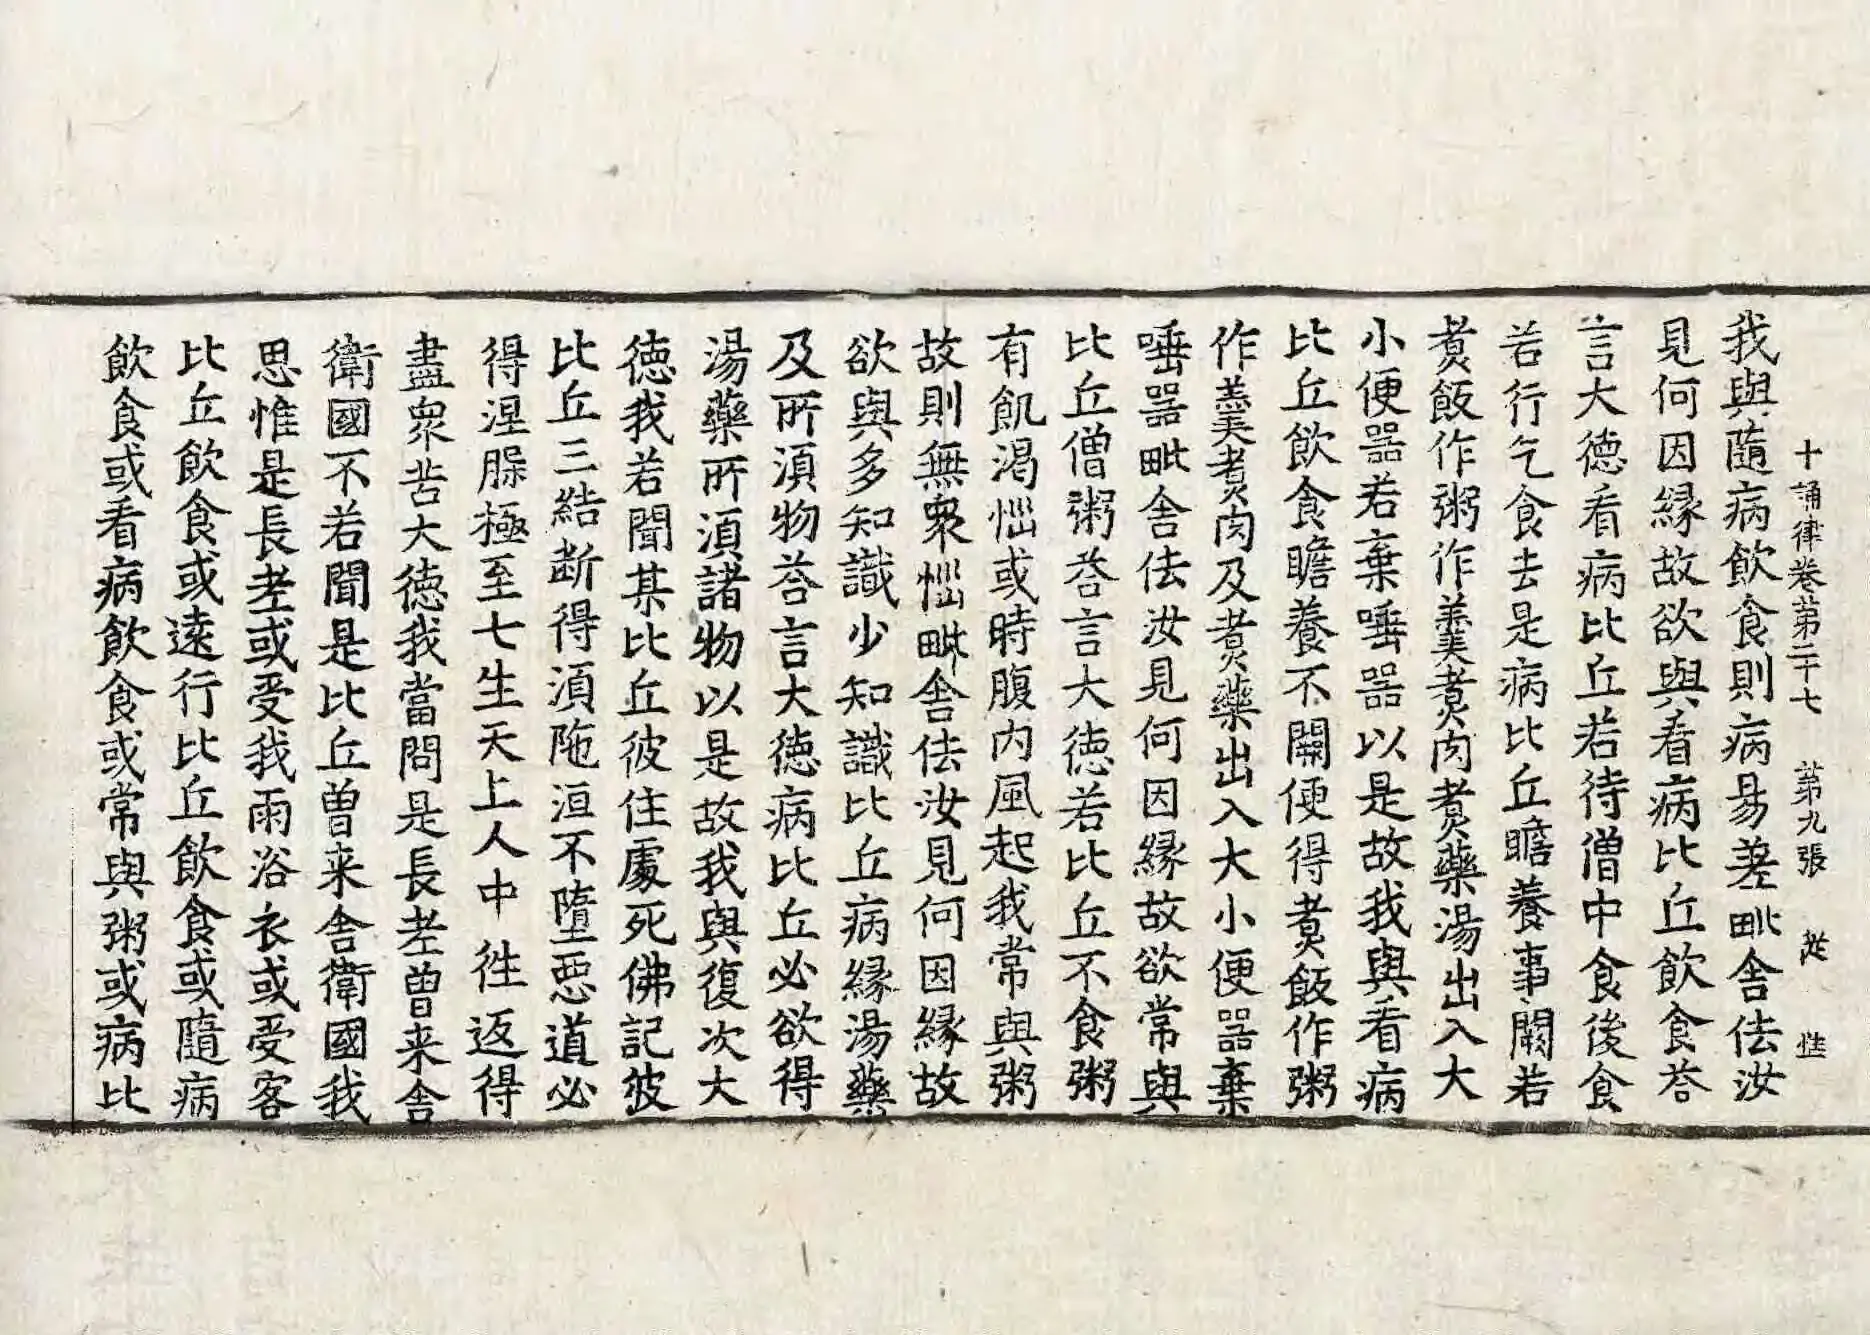 十誦律卷第二十七　第九張　𡵯
我與隨病飲食則病易差毗舍佉汝
見何因縁故欲與看病比丘飲食荅
言大德看病比丘若待僧中食後食
若行乞食去是病比丘瞻養事闕若
煑飯作粥作羹煑肉煑藥湯出入大
小便器若棄唾器以是故我與看病
比丘飲食瞻養不闕便得煑飯作粥
作羹煑肉及煑藥出入大小便器棄
唾器毗舍佉汝見何因縁故欲常與
比丘僧粥荅言大德若比丘不食粥
有飢渴惱或時腹内風起我常與粥
故則無衆惱毗舍佉汝見何因縁故
欲與多知識少知識比丘病縁湯藥
及所湏物荅言大德病比丘必欲得
湯藥所湏諸物以是故我與復次大
德我若聞某比丘彼住處死佛記彼
比丘三結断得湏陁洹不墮惡道必
得涅脲極至七生天上人中往返得
盡衆苦大德我當問是長老曽来舍
衛國不若聞是比丘曽来舍衛國我
思惟是長老或受我雨浴衣或受客
比丘飲食或遠行比丘飲食或隨病
飲食或看病飲食或常與粥或病比